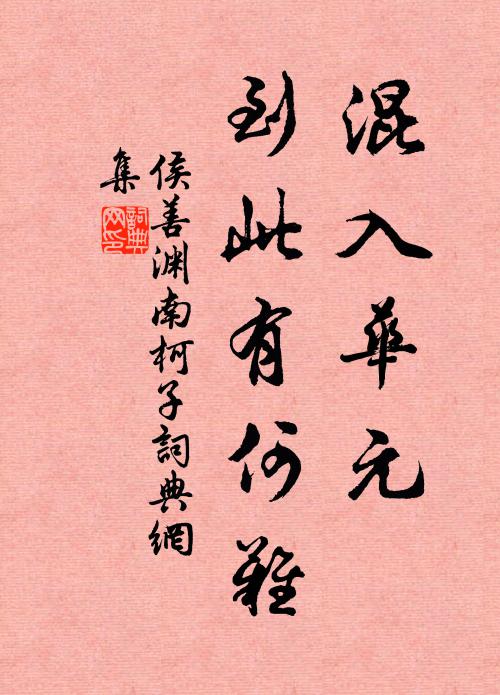 混入華元
到此有何難
侯善渊南柯子詞典網
集
詞典
网印